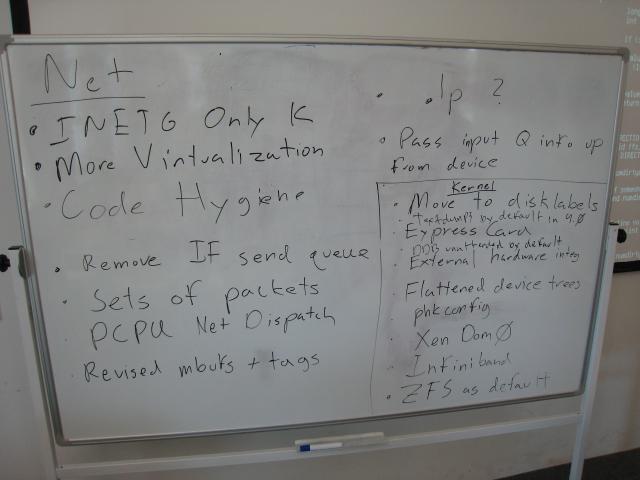 Net
INET6 Only K
More Vintualization
Code Hygiene
Remove IF send queue
Sets of packets
PCPU Net Dispatch
Revised mbufs + tags
.1p ?
Pass input Q info up
from device
Kernel
Move to disklabels
Textdumps by default in 9.0
Express Card
DDB unattended by default
External hardware integ
Flattened device trees
phkconfig
Xen Dom0
Infiniband
ZFS as default